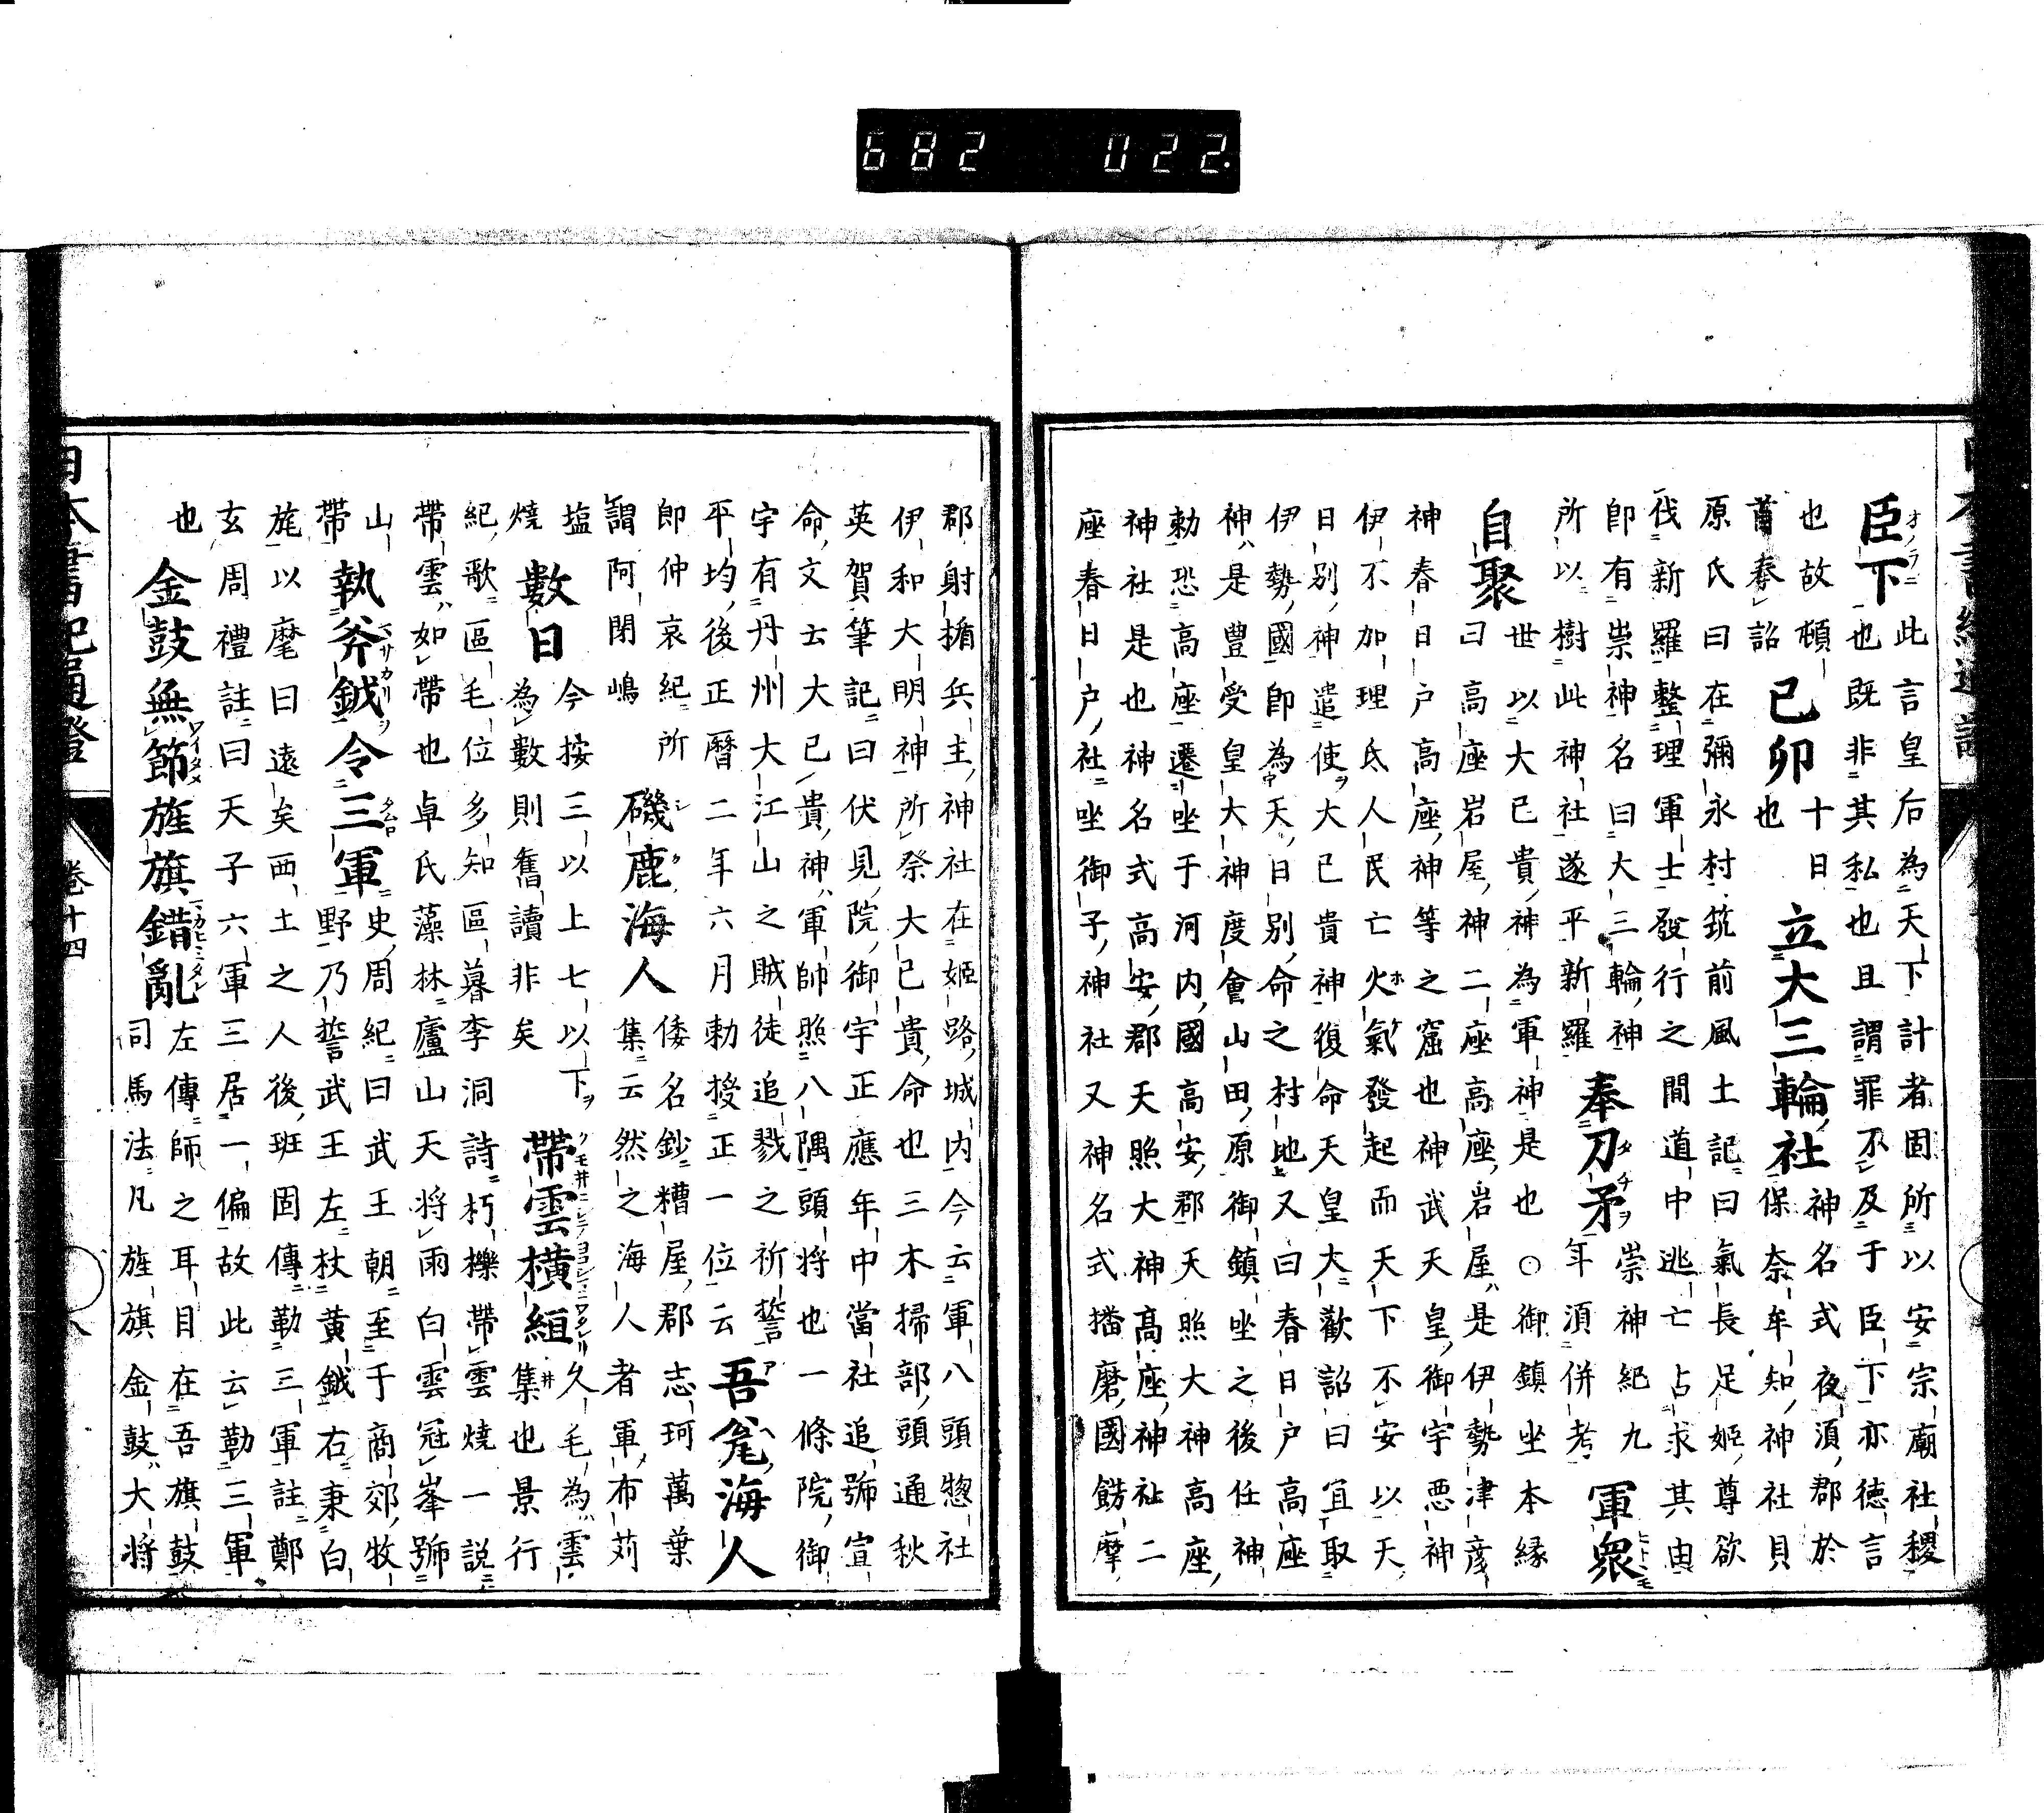 臣下
此言皇后為天下計者固所以安宗廟社稷
也既非其私也且謂罪不及于臣下亦德言
也故頓
首奉詔
己卯
十日
也
立大三輪社
神名式夜須郡於
保奈牟知神社貝
原氏曰在彌永村筑前風土記曰氣長足姫尊欲
伐新羅整理軍士發行之間道中逃亡占求其由
即有祟神名曰大三輪神
所以樹此神社遂平新羅
奉刀矛
崇神紀九
年須併考
軍衆
自聚
世以大已貴神為軍神是也○御鎮坐本縁
曰高座岩屋神二座高座岩屋是伊勢津彦
神春日戸高座神等之窟也神武天皇御宇悪神
伊不加理氐人民亡火氣發起而天下不安以天
日別神遣使大已貴神復命天皇大歡詔曰宜取
伊勢國即為天日別命之村地又曰春日戸高座
神是豊受皇大神度會山田原御鎮坐之後任神
勅恐高座遷坐于河内國高安郡天照大神高座
神社是也神名式高安郡天照大神高座神社二
座春日戸社坐御子神社又神名式播磨國餝摩
郡射楯兵主神社在姫路城内今云軍八頭惣社
伊和大明神所祭大已貴命也三木掃部頭通秋
英賀筆記曰伏見院御宇正應年中當社追號宣
命文云大已貴神軍帥照八隅頭将也一條院御
宇有丹州大江山之賊徒追戮之祈誓
平均後正暦二年六月勅授正一位云
吾瓮海人
即仲哀紀所
謂阿閉嶋
磯鹿海人
倭名鈔糟屋郡志珂萬葉
集云然之海人者軍布苅
塩
燒
數日
今按三以上七以下
為數則舊讀非矣
帶雲横絙
久毛為雲
集也景行
紀歌區毛位多知區暮李洞詩朽櫟帶雲燒一説
帶雲如帶也卓氏藻林廬山天将雨白雲冠峯號
山
帶
執斧鉞令三軍
史周紀曰武王朝至于商郊牧
野乃誓武王左杖黄鉞右秉白
旄以麾曰遠矣西土之人後班固傳勒三軍註鄭
玄周禮註曰天子六軍三居一偏故此云勒三軍
也
金鼓無節旌旗錯亂
左傳師之耳目在吾旗鼓
司馬法凡旌旗金鼓大将
日本書紀通證
卷十四
八
682 022